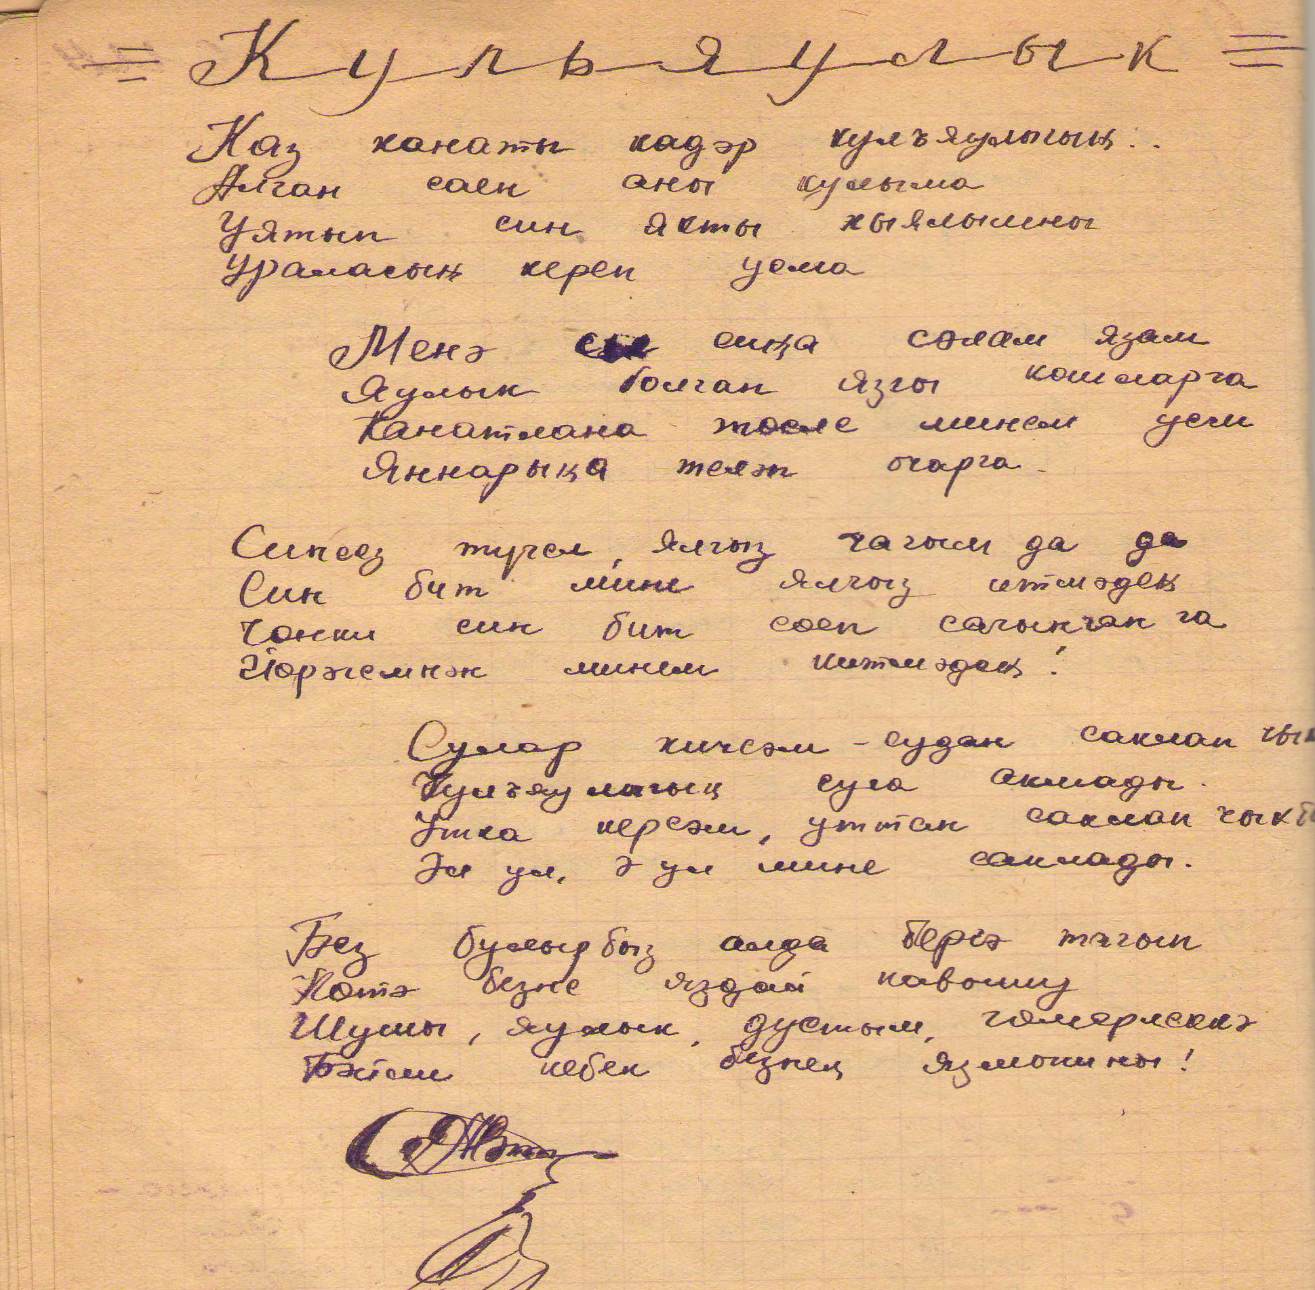 = Кульяулык =
Каз канаты кадәр кулъяулыгың..
Алган саен аны кулыма
Уятып син якты хыялымны
Ураласың кереп уема
Менә сиңа сәлам язам
Яулык болган язгы кошларга
Канатлана төсле минем уем
Яннарыңа теләп очарга
Синсез түгел, ялгыз чагым да да
Син бит мине ялгыз итмәдең
Чөнки син бит сөеп сагынганга
Йөрәгемнән минем китмәдең!
Сулар кичсәм - судан саклап чык
Кулъяулыгың суга акмады.
Утка керсәм, уттан саклап чыкт
Әй ул, ә ул мине саклады.
Без булырбыз алда бергә тагын
Көтә безне яздай кавышу
Шушы, яулык, дустым, гөмерлеккә
Бәйли кебек безнең язмышны!